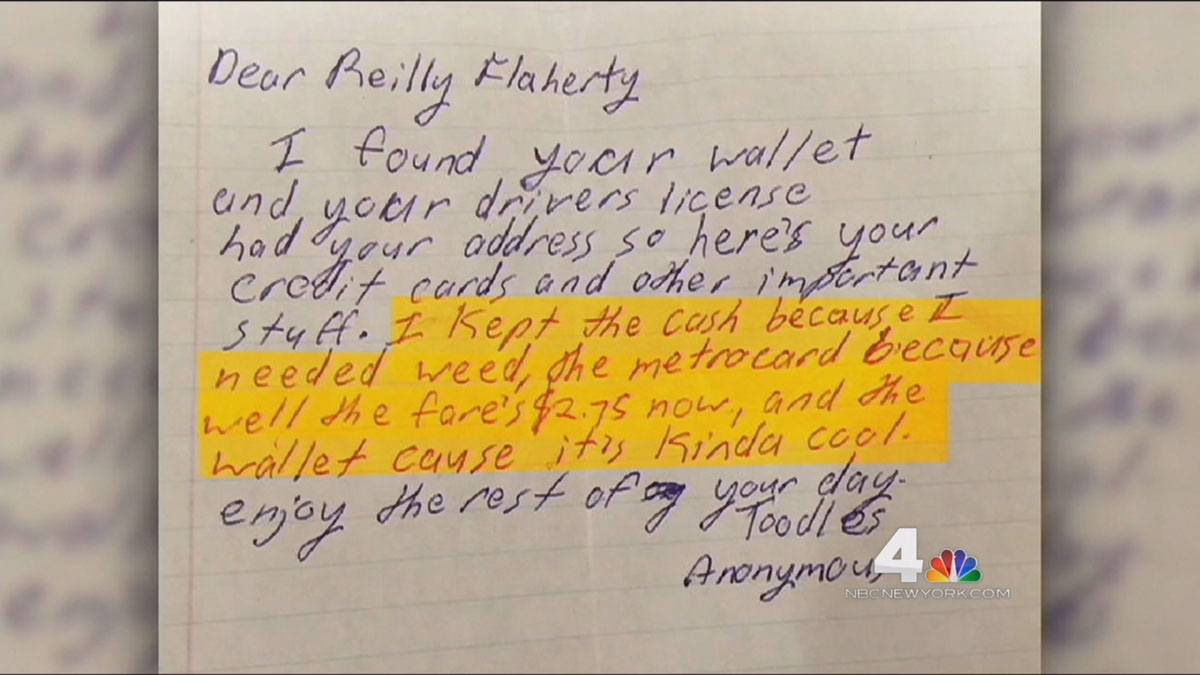 Dear Reilly Flaherty
I found your wallet
and your drivers license
had your address so here's your
credit cards and other important
stuff. I kept the cash because I
needed weed, the metrocard because
well the fare's $2.75 now, and the
wallet cause it's kinda cool.
enjoy the rest of your day.
Toodles
Anonymous
4
NBCNEWYORK.COM